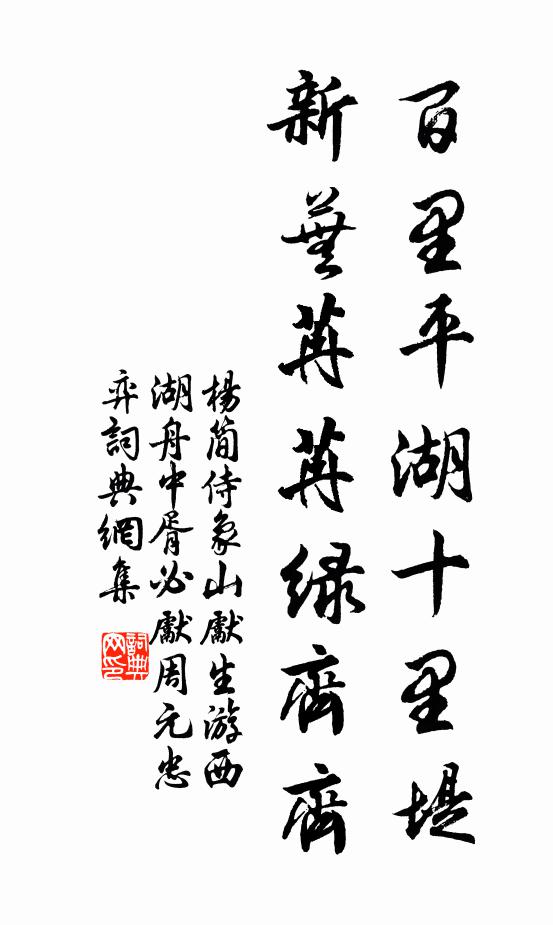 百里平湖十里堤
新芜苒苒绿齊齊
楊简侍象山獻生游西
湖舟中胥必獻周元忠
弈詞典網集
詞典网印